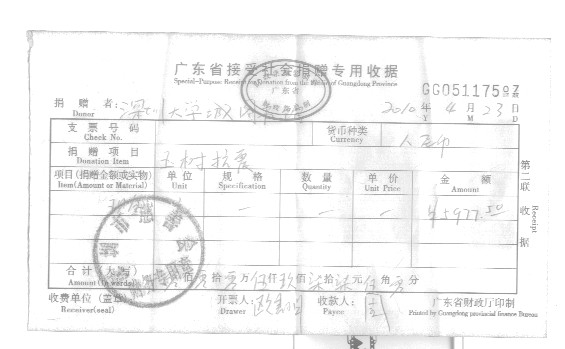 广东省接受社会捐赠专用收据
Special-Purpose Receipt for Donation from the Public of Guangdong Province
广东省
GG0511759Z
捐赠者：深圳大学
Donor
2010年4月23日
Y M D
支票号码
Check No.
货币种类 人民币
Currency
捐赠项目 玉树抗震
Donation Item
项目(捐赠金额或实物) 单位 规格 数量 单价 金额
Item(Amount or Material) Unit Specification Quantity Unit Price Amount
— — — ¥5977.50
合计(大写) 佰 拾 万伍仟玖佰柒拾柒元伍角 分
Amount(In words)
第二联 收据
Receipt
收费单位(盖章) 开票人: 收款人:
Receiver(seal) Drawer Payee
广东省财政厅印制
Printed by Guangdong provincial finance Bureau